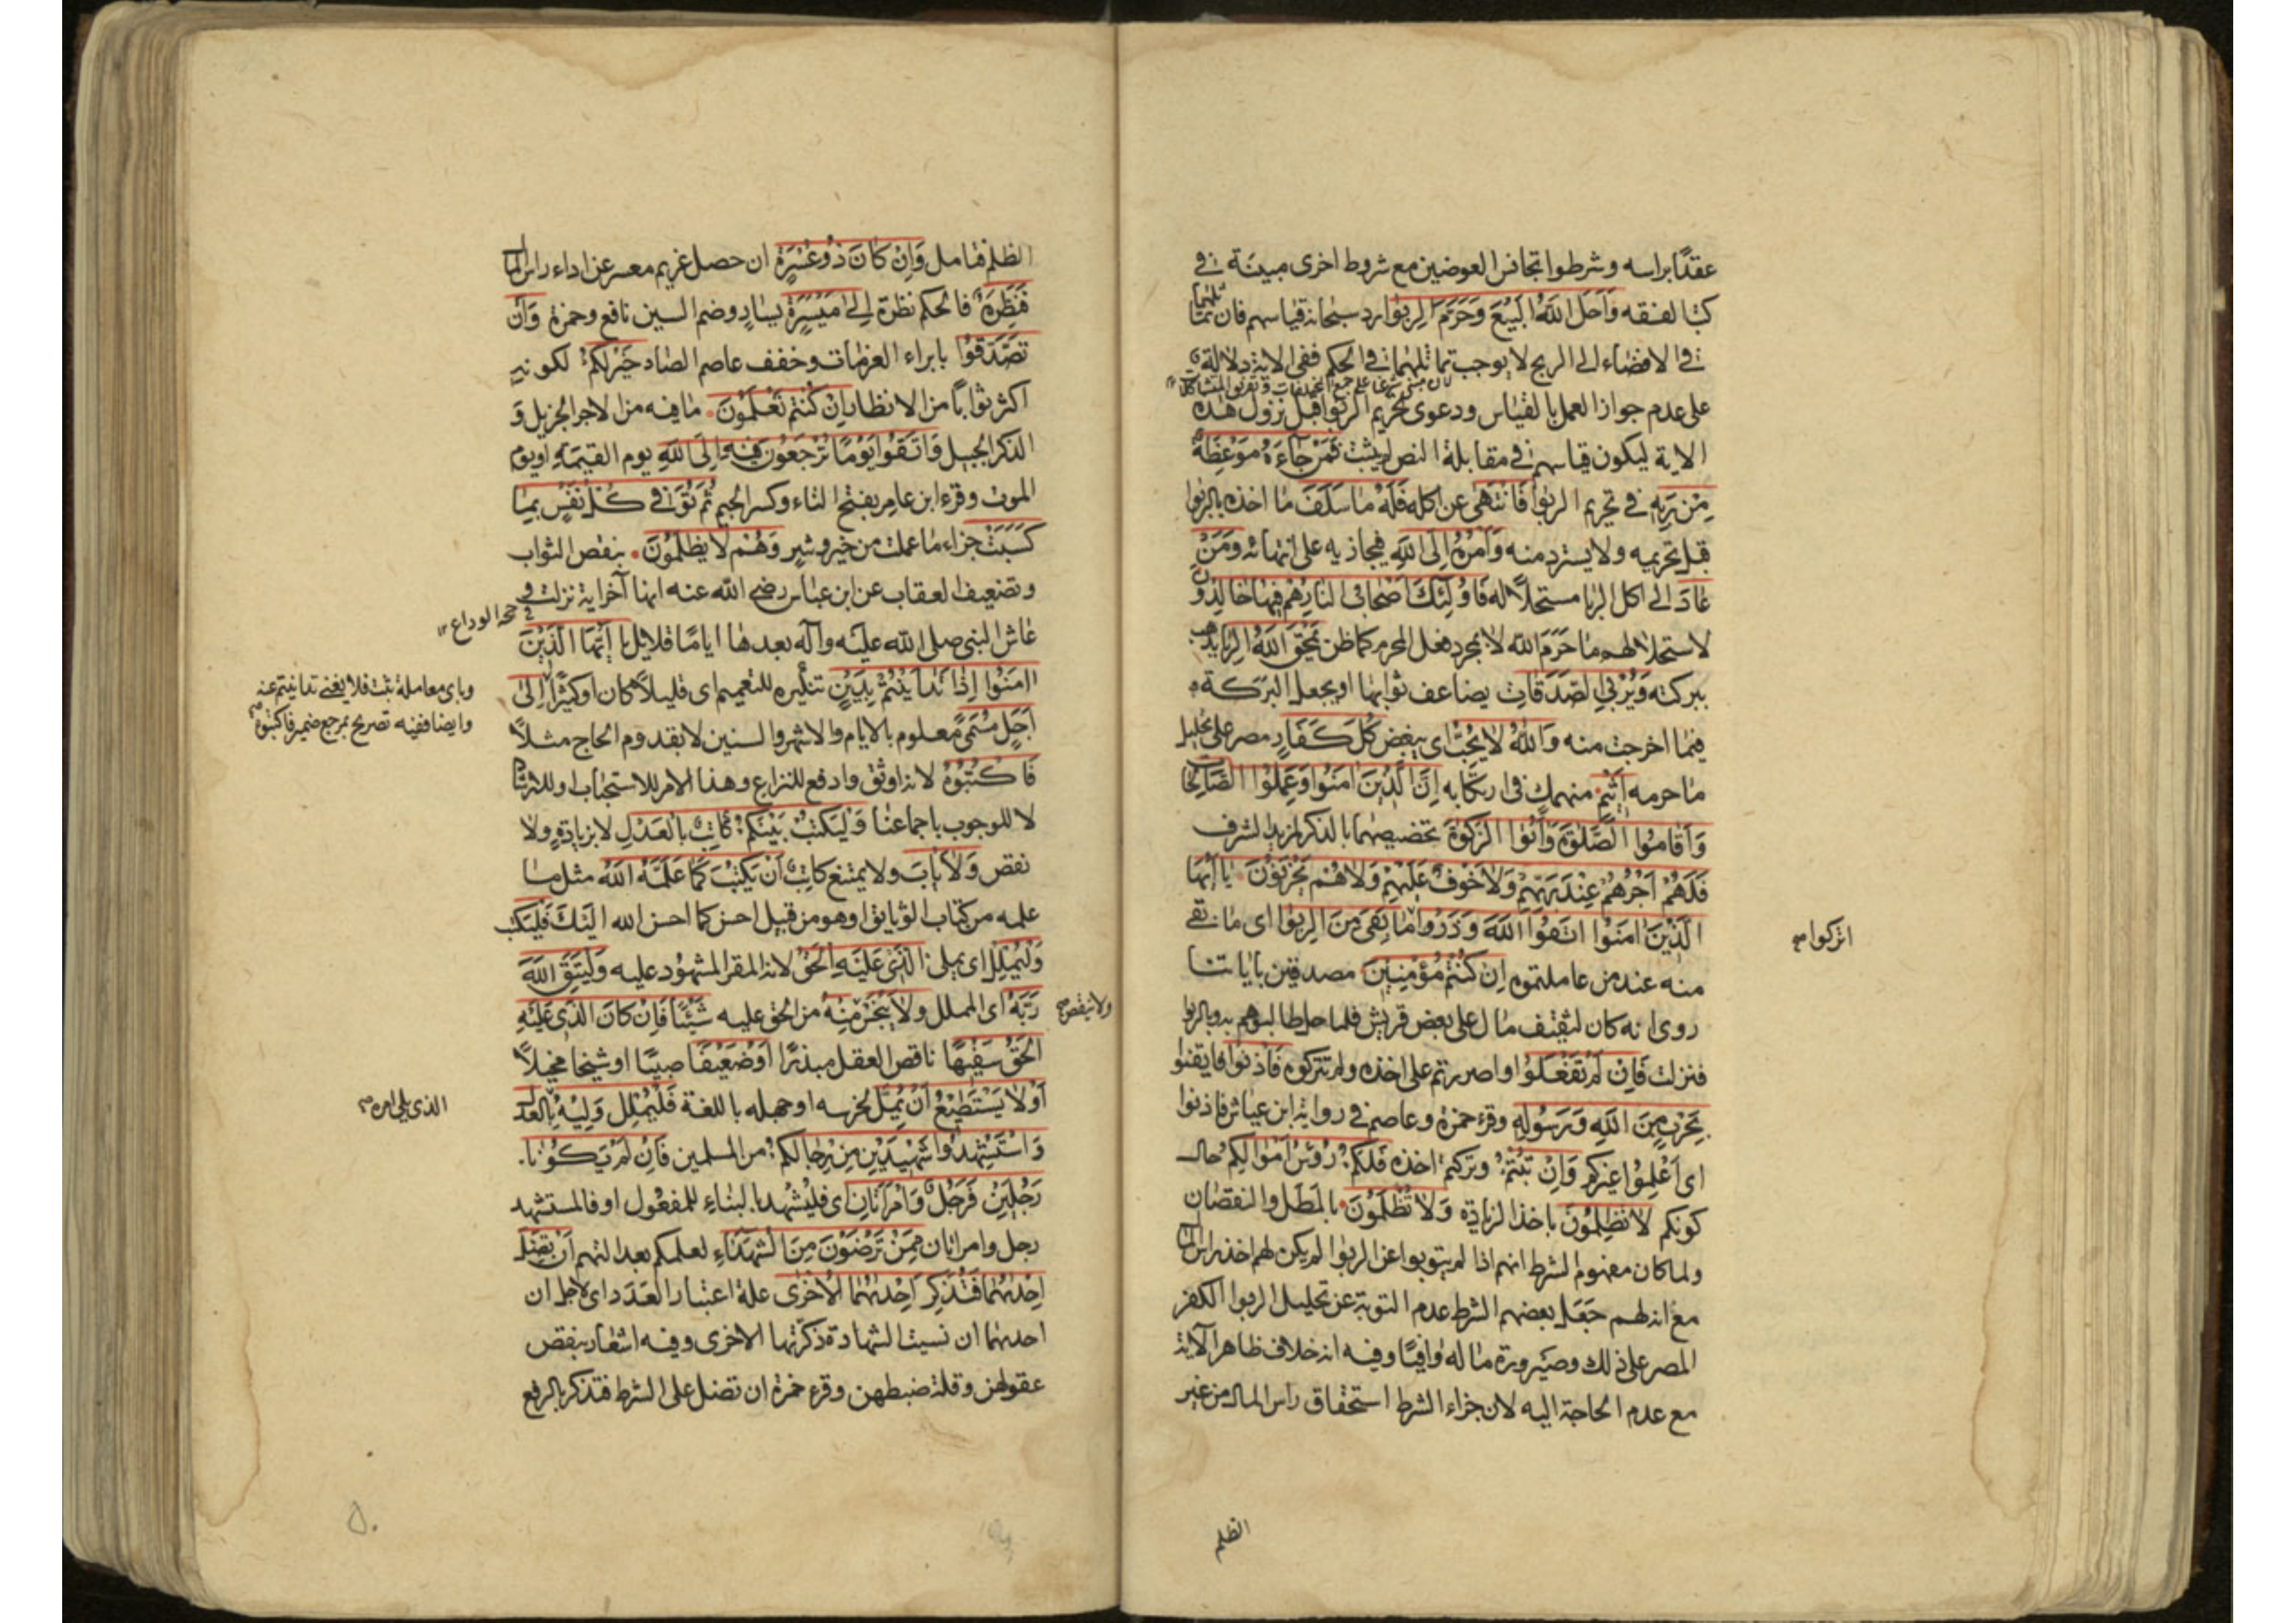 عقدًا براسه وشرطوا تجانس العوضين مع شروط اخرى مبينة في
كتب الفقه وَاَحَلَّ اللهُ الْبَيْعَ وَحَرَّمَ الرِّبٰوا رد سبحانه قياسهم فان تماثلهما
في الافضاء الى الربح لا يوجب تماثلهما في الحكم ففى الاية دلالة
على عدم جواز العمل بالقياس ودعوى تحريم الربوا قبل نزول هذه
الاية ليكون قياسهم في مقابلة النص لم يثبت فَمَنْ جَاءَهُ مَوْعِظَةٌ
مِنْ رَبِّهِ في تحريم الربوا فَانْتَهٰى عن اكله فَلَهُ مَا سَلَفَ ما اخذه بالربوا
قبل تحريمه ولا يسترد منه وَاَمْرُهُ اِلَى اللهِ فيجازيه على انتهائه وَمَنْ
عَادَ الى اكل الربا مستحلًا له فَاُولٰئِكَ اَصْحَابُ النَّارِ هُمْ فِيهَا خَالِدُونَ
لاستحلالهم ما حَرَّمَ الله لا بمجرد فعل المحرم كما ظن يَمْحَقُ اللهُ الرِّبَا يذهب
ببركته وَيُرْبِي الصَّدَقَاتِ يضاعف ثوابها او يجعل البركة
فيما اخرجت منه وَاللهُ لَا يُحِبُّ اى يبغض كُلَّ كَفَّارٍ مصر على تحليل
ما حرمه اَثِيمٍ منهمك في ارتكابه اِنَّ الَّذِينَ اٰمَنُوا وَعَمِلُوا الصَّالِحَاتِ
وَاَقَامُوا الصَّلٰوةَ وَاٰتَوُا الزَّكٰوةَ تخصيصهما بالذكر لمزيد الشرف
فَلَهُمْ اَجْرُهُمْ عِنْدَ رَبِّهِمْ وَلَا خَوْفٌ عَلَيْهِمْ وَلَا هُمْ يَحْزَنُونَ يَا اَيُّهَا
الَّذِينَ اٰمَنُوا اتَّقُوا اللهَ وَذَرُوا مَا بَقِيَ مِنَ الرِّبٰوا اى ما بقى
اتركوا
منه عند من عاملتموه اِنْ كُنْتُمْ مُؤْمِنِينَ مصدقين باياتنا
روى انه كان لثقيف مال على بعض قريش فلما حل طالبوهم به وبالربوا
فنزلت فَاِنْ لَمْ تَفْعَلُوا واصررتم على اخذه ولم تتركوه فَأْذَنُوا فايقنوا
بِحَرْبٍ مِنَ اللهِ وَرَسُولِهِ وقرء حمزة وعاصم في رواية ابن عياش فاذنوا
اى اَعْلِمُوا غيركم وَاِنْ تُبْتُمْ وتركتم اخذه فَلَكُمْ رُؤُسُ اَمْوَالِكُمْ حال
كونكم لَا تَظْلِمُونَ باخذ الزيادة وَلَا تُظْلَمُونَ بالمطل والنقصان
ولما كان مفهوم الشرط انهم اذا لم يتوبوا عن الربوا لم يكن لهم اخذ راس المال
مع انه لهم جَعَل بعضهم الشرط عدم التوبة عن تحليل الربوا الكفر
المصر على ذلك وصيرورة ماله وافيًا وفيه انه خلاف ظاهر الاية
مع عدم الحاجة اليه لان جزاء الشرط استحقاق راس المال من غير
الظلم
الظلم فتامل وَاِنْ كَانَ ذُو عُسْرَةٍ ان حصل غريم معسر عن اداء راس المال
فَنَظِرَةٌ فالحكم نظرة اِلٰى مَيْسَرَةٍ يسارٍ وضم السين نافع وحمزة وَاَنْ
تَصَدَّقُوا بابراء الغرمات وخفف عاصم الصاد خَيْرٌ لَكُمْ لكونه
اكثر ثوابًا من الانظار اِنْ كُنْتُمْ تَعْلَمُونَ ما فيه من الاجر الجزيل و
الذكر الجميل وَاتَّقُوا يَوْمًا تُرْجَعُونَ فِيهِ اِلَى اللهِ يوم القيمة او يوم
الموت وقرء ابن عامر بفتح التاء وكسر الجيم ثُمَّ تُوَفّٰى كُلُّ نَفْسٍ بِمَا
كَسَبَتْ جزاء ما عملت من خير وشر وَهُمْ لَا يُظْلَمُونَ بنقص الثواب
وتضعيف العقاب عن ابن عباس رضى الله عنه انها آخر اية نزلت و
في حجة الوداع
عاش النبى صلى الله عليه وآله بعدها ايامًا قلايل يَا اَيُّهَا الَّذِينَ
اٰمَنُوا اِذَا تَدَايَنْتُمْ بِدَيْنٍ تنكيره للتعميم اى قليلًا كان او كثيرًا اِلٰى
وباى معاملة بثت فلا يغنى تداينتم عنه
وايضا ففيه تصريح بمرجع ضمير فاكتبوه
اَجَلٍ مُسَمًّى معلوم بالايام والاشهر والسنين لا بقدوم الحاج مثلًا
فَاكْتُبُوهُ لانه اوثق وادفع للنزاع وهذا الامر للاستحباب او للارشاد
لا للوجوب باجماعنا وَلْيَكْتُبْ بَيْنَكُمْ كَاتِبٌ بِالْعَدْلِ لا بزيادة ولا
نقص وَلَا يَأْبَ ولا يمتنع كَاتِبٌ اَنْ يَكْتُبَ كَمَا عَلَّمَهُ اللهُ مثل ما
علمه من كتاب الوثايق او هو من قبيل احسن كما احسن الله اليك فَلْيَكْتُبْ
وَلْيُمْلِلِ اى يملى الَّذِي عَلَيْهِ الْحَقُّ لانه المقر المشهود عليه وَلْيَتَّقِ اللهَ
رَبَّهُ اى المملل وَلَا يَبْخَسْ مِنْهُ من الحق عليه شَيْئًا فَاِنْ كَانَ الَّذِي عَلَيْهِ
ولا ينقص
الْحَقُّ سَفِيهًا ناقص العقل مبذرًا اَوْ ضَعِيفًا صبيًا او شيخا مخبلًا
اَوْ لَا يَسْتَطِيعُ اَنْ يُمِلَّ لخرسه او جهله باللغة فَلْيُمْلِلْ وَلِيُّهُ بِالْعَدْلِ
الذى يلى امره
وَاسْتَشْهِدُوا شَهِيدَيْنِ مِنْ رِجَالِكُمْ من المسلمين فَاِنْ لَمْ يَكُونَا
رَجُلَيْنِ فَرَجُلٌ وَامْرَاَتَانِ اى فليُشْهَد بالبناء للمفعول او فالمستشهد
رجل وامراتان مِمَّنْ تَرْضَوْنَ مِنَ الشُّهَدَاءِ لعلمكم بعدالتهم اَنْ تَضِلَّ
اِحْدٰيهُمَا فَتُذَكِّرَ اِحْدٰيهُمَا الْاُخْرٰى علة اعتبار العَدَد اى لاجل ان
احديهما ان نسيت الشهادة ذكرتها الاخرى وفيه اشعار بنقص
عقولهن وقلة ضبطهن وقرء حمزة ان تضل على الشرط فتذكر بالرفع
٥٠